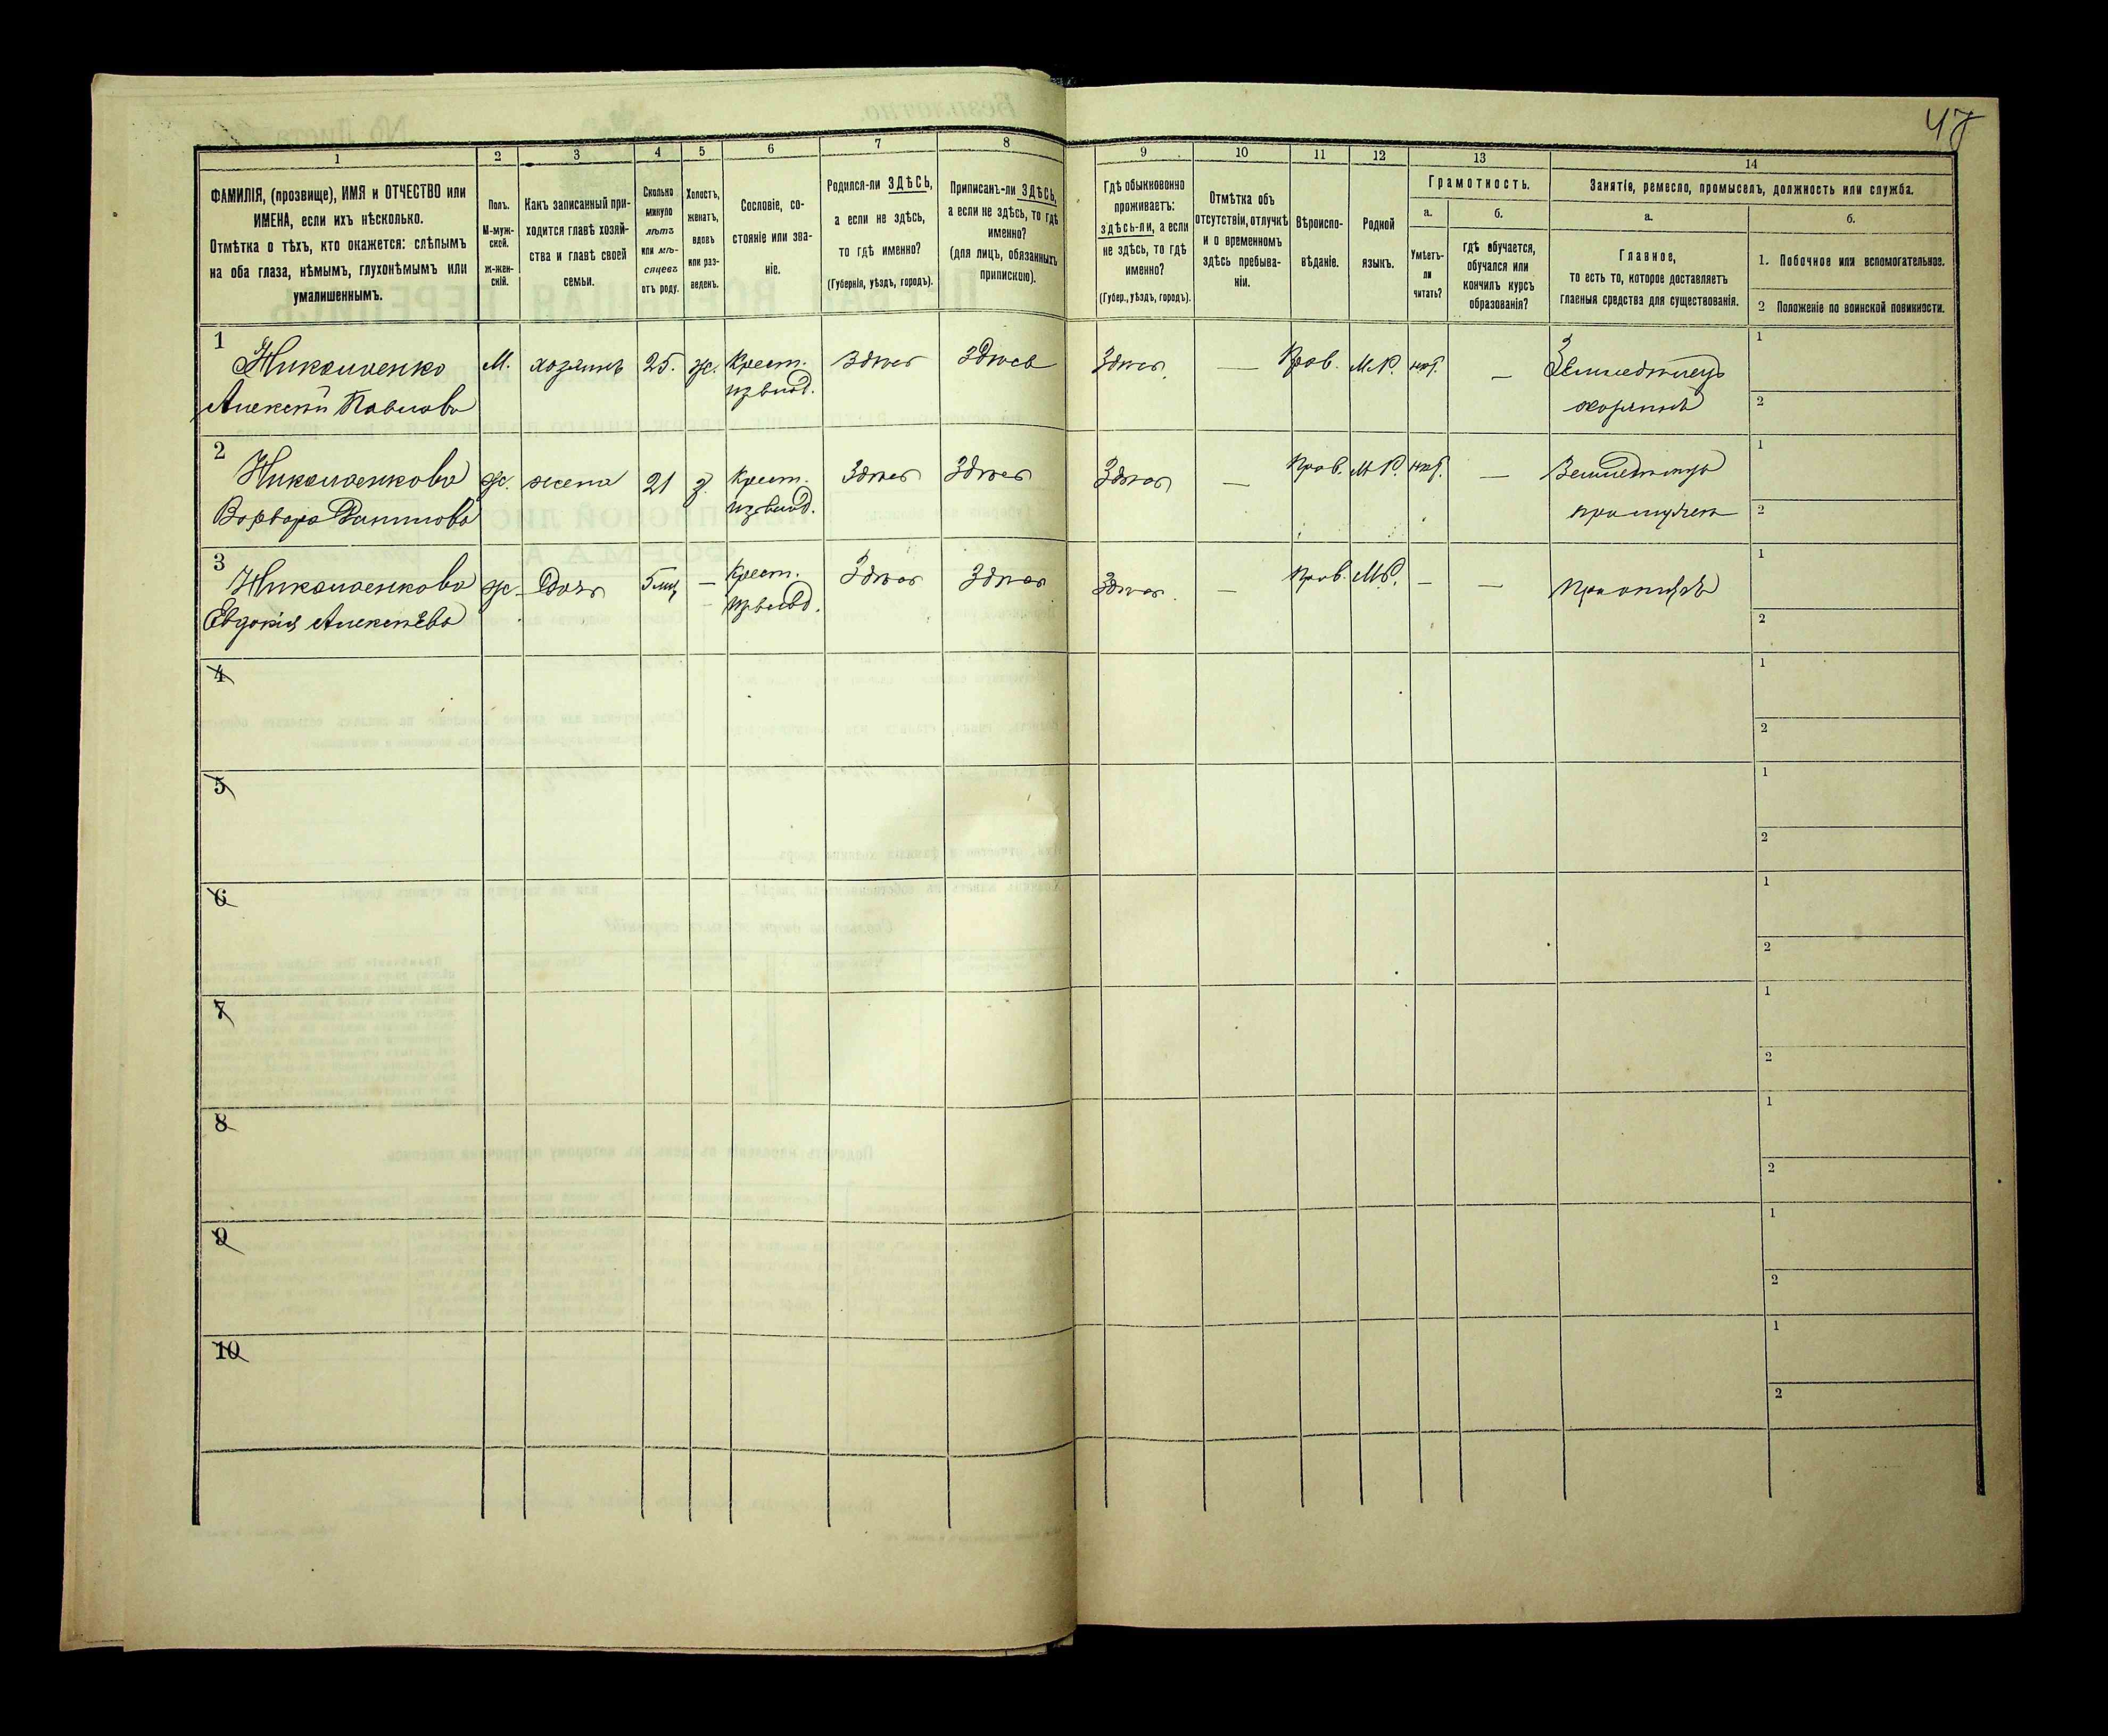 47
1
2
3
4
5
6
7
8
9
10
11
12
13
14
ФАМИЛІЯ, (прозвище), ИМЯ и ОТЧЕСТВО или
ИМЕНА, если ихъ нѣсколько.
Отмѣтка о тѣхъ, кто окажется: слѣпымъ
на оба глаза, нѣмымъ, глухонѣмымъ или
умалишеннымъ.
Полъ.
М-муж-
ской.
Ж-жен-
скій.
Какъ записанный при-
ходится главѣ хозяй-
ства и главѣ своей
семьи.
Сколько
минуло
лѣтъ
или мѣ-
сяцевъ
отъ роду.
Холостъ,
женатъ,
вдовъ
или раз-
веденъ.
Сословіе, со-
стояніе или зва-
ніе.
Родился-ли ЗДѢСЬ,
а если не здѣсь,
то гдѣ именно?
(Губернія, уѣздъ, городъ).
Приписанъ-ли ЗДѢСЬ,
а если не здѣсь, то гдѣ
именно?
(для лицъ, обязанныхъ
припискою).
Гдѣ обыкновенно
проживаетъ:
здѣсь-ли, а если
не здѣсь, то гдѣ
именно?
(Губер., уѣздъ, городъ).
Отмѣтка объ
отсутствіи, отлучкѣ
и о временномъ
здѣсь пребыва-
ніи.
Вѣроиспо-
вѣданіе.
Родной
языкъ.
Грамотность.
а.
Умѣетъ-
ли
читать?
б.
гдѣ обучается,
обучался или
кончилъ курсъ
образованія?
Занятіе, ремесло, промыселъ, должность или служба.
а.
Главное,
то есть то, которое доставляетъ
главныя средства для существованія.
б.
1. Побочное или вспомогательное.
2 Положеніе по воинской повинности.
1
Николаенко
Алексѣй Павловъ
М.
хозяинъ
25.
ж.
Крест.
из влад.
Здѣсь
Здѣсь
Здѣсь.
—
Прав.
М.Р.
нѣт.
—
Земледѣлецъ
хозяинъ
1
2
2
Николаенкова
Варвара Данилова
Ж.
жена
21
з.
Крест.
из влад.
Здѣсь
Здѣсь
Здѣсь
—
Прав.
М.Р.
нѣт.
—
Земледѣлецъ
1
2
3
Николаенкова
Евдокія Алексѣева
Ж.
Дочь
5 мц
—
Крест.
из влад.
Здѣсь
Здѣсь
Здѣсь.
—
Прав.
М.Р.
—
—
1
2
4
1
2
5
1
2
6
1
2
7
1
2
8
1
2
9
1
2
10
1
2